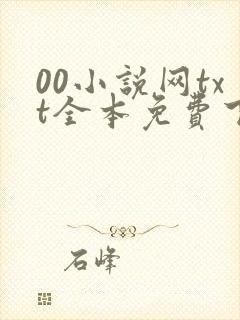 00小説网tx
t全本免費下
石峰